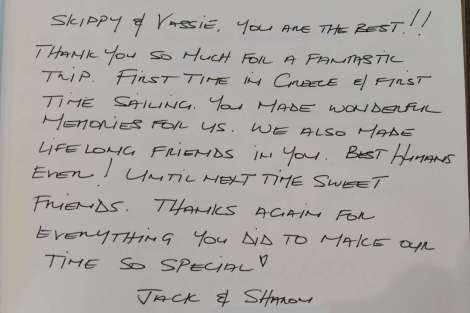 SKIPPY & VASSIE, YOU ARE THE BEST!!
THANK YOU SO MUCH FOR A FANTASTIC
TRIP. FIRST TIME IN GREECE & FIRST
TIME SAILING. YOU MADE WONDERFUL
MEMORIES FOR US. WE ALSO MADE
LIFE LONG FRIENDS IN YOU. BEST HUMANS
EVER! UNTIL NEXT TIME SWEET
FRIENDS. THANKS AGAIN FOR
EVERYTHING YOU DID TO MAKE OUR
TIME SO SPECIAL ♡
JACK & SHARON